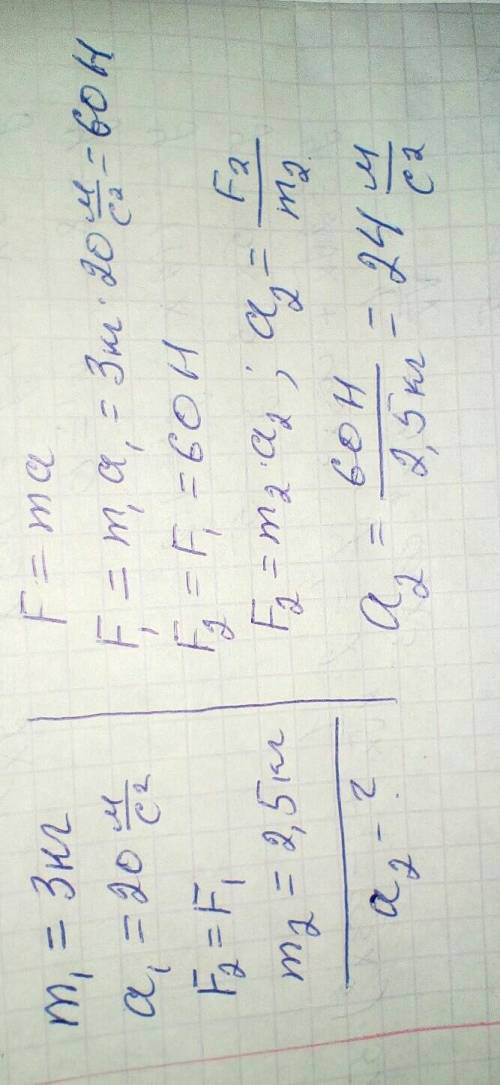 m₁ = 3кг
a₁ = 20 м/с²
F₂ = F₁
m₂ = 2,5кг
a₂ - ?
F = ma
F₁ = m₁a₁ = 3кг · 20 м/с² = 60Н
F₂ = F₁ = 60Н
F₂ = m₂ · a₂ ; a₂ = F₂/m₂
a₂ = 60Н/2,5кг = 24 м/с²